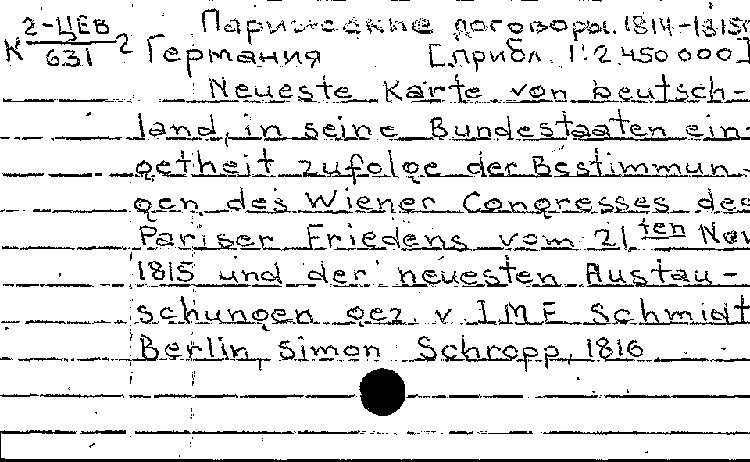 Парижские договоры. 1814-1815г
К 2-ЦЕВ/631 2 Германия [прибл. 1:2.450 000]
Neueste Karte von Deutsch-
land, in seine Bundestaaten ein-
getheit zufolge der Bestimmun-
gen des Wiener Congresses des
Pariser Friedens vom 21 ten Nov
1815 und der neuesten Austau-
schungen gez. v. I.M.F. Schmidt
Berlin, Simon Schropp, 1816